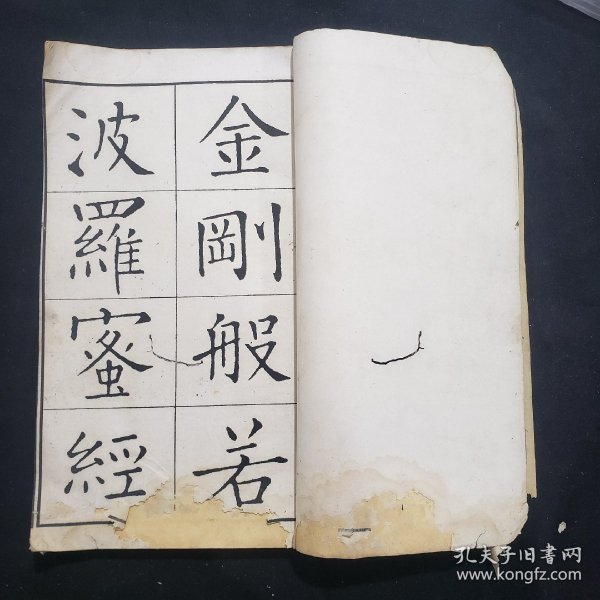 金剛般若
波羅蜜經
孔夫子旧书网
www.kongfz.com